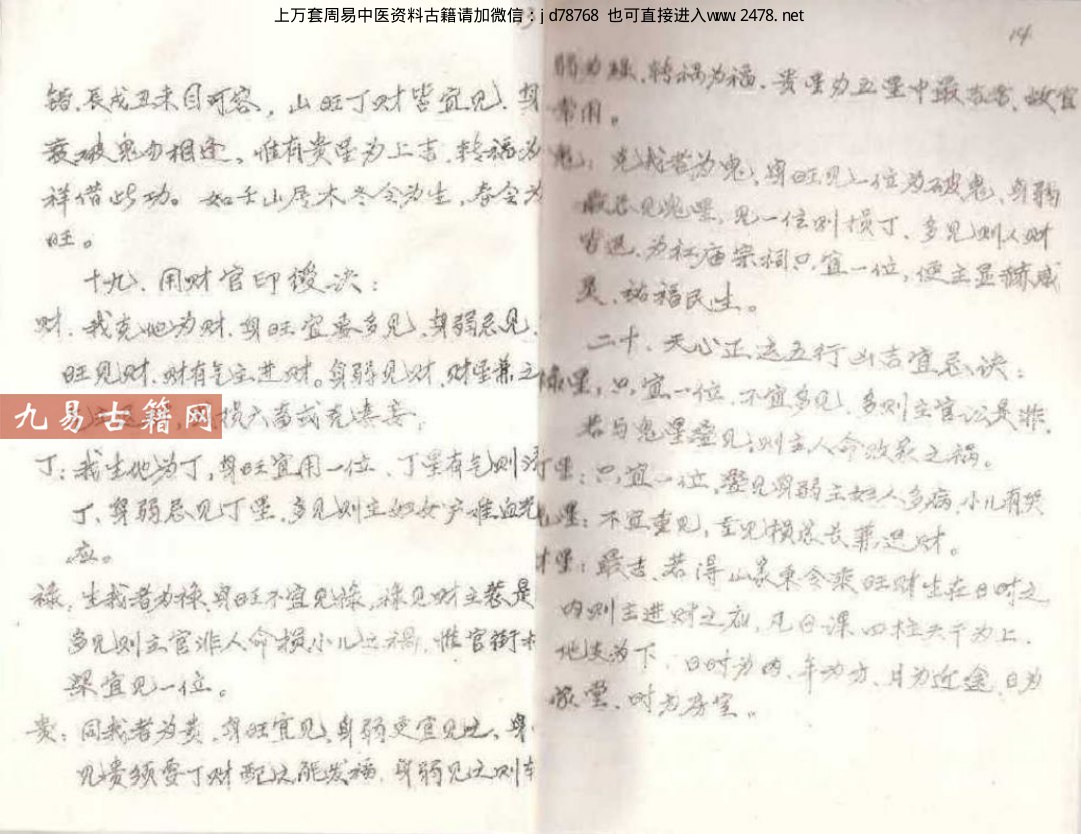 上万套周易中医资料古籍请加微信：jd78768 也可直接进入www.2478.net
错，辰戌丑未自可容，山旺丁财皆宜见，身
衰破鬼勿相逢，惟有贵星为上吉，转福为
祥借此功。如壬山居木冬令为生，春令为
旺。
十九、用财官印绶决：
财：我克他为财，身旺宜要多见，身弱忌见，
旺见财，财有气主进财。身弱见财，财星兼之
损六畜或克妻妾，
九易古籍网
丁：我生他为丁，身旺宜用一位、丁星有气则添
丁、身弱忌见丁星，多见则主妇女产难血光
应。
禄：生我者为禄，身旺不宜见禄，禄见财主惹是
多见则主官非人命损小儿之祸，惟官衙桥
梁宜见一位。
贵：同我者为贵，身旺宜见，身弱更宜见之，身
见贵须要丁财配之能发福，身弱见之则转
14
弱为强，转祸为福，贵星为五星中最吉者，故宜
常用。
鬼：克我者为鬼，身旺见一位为破鬼、身弱
最忌见鬼星，见一位则损丁、多见则人财
皆退，为社庙宗祠只宜一位，便主显赫威
灵，祐福民生。
二十、天心正运五行凶吉宜忌诀：
禄星：只宜一位，不宜多见，多则主官讼是非，
若与鬼星叠见，则主人命败家之祸。
丁星：只宜一位，叠见身弱主妇人多病，小儿有哭
鬼星：不宜重见，重见损家长兼退财。
财星：最吉，若得山家乘令乘旺财生在日时之
内则主进财之应，凡日课四柱天干为上，
地支为下，日时为内，年为方、月为近途，日为
家堂，时为房室。